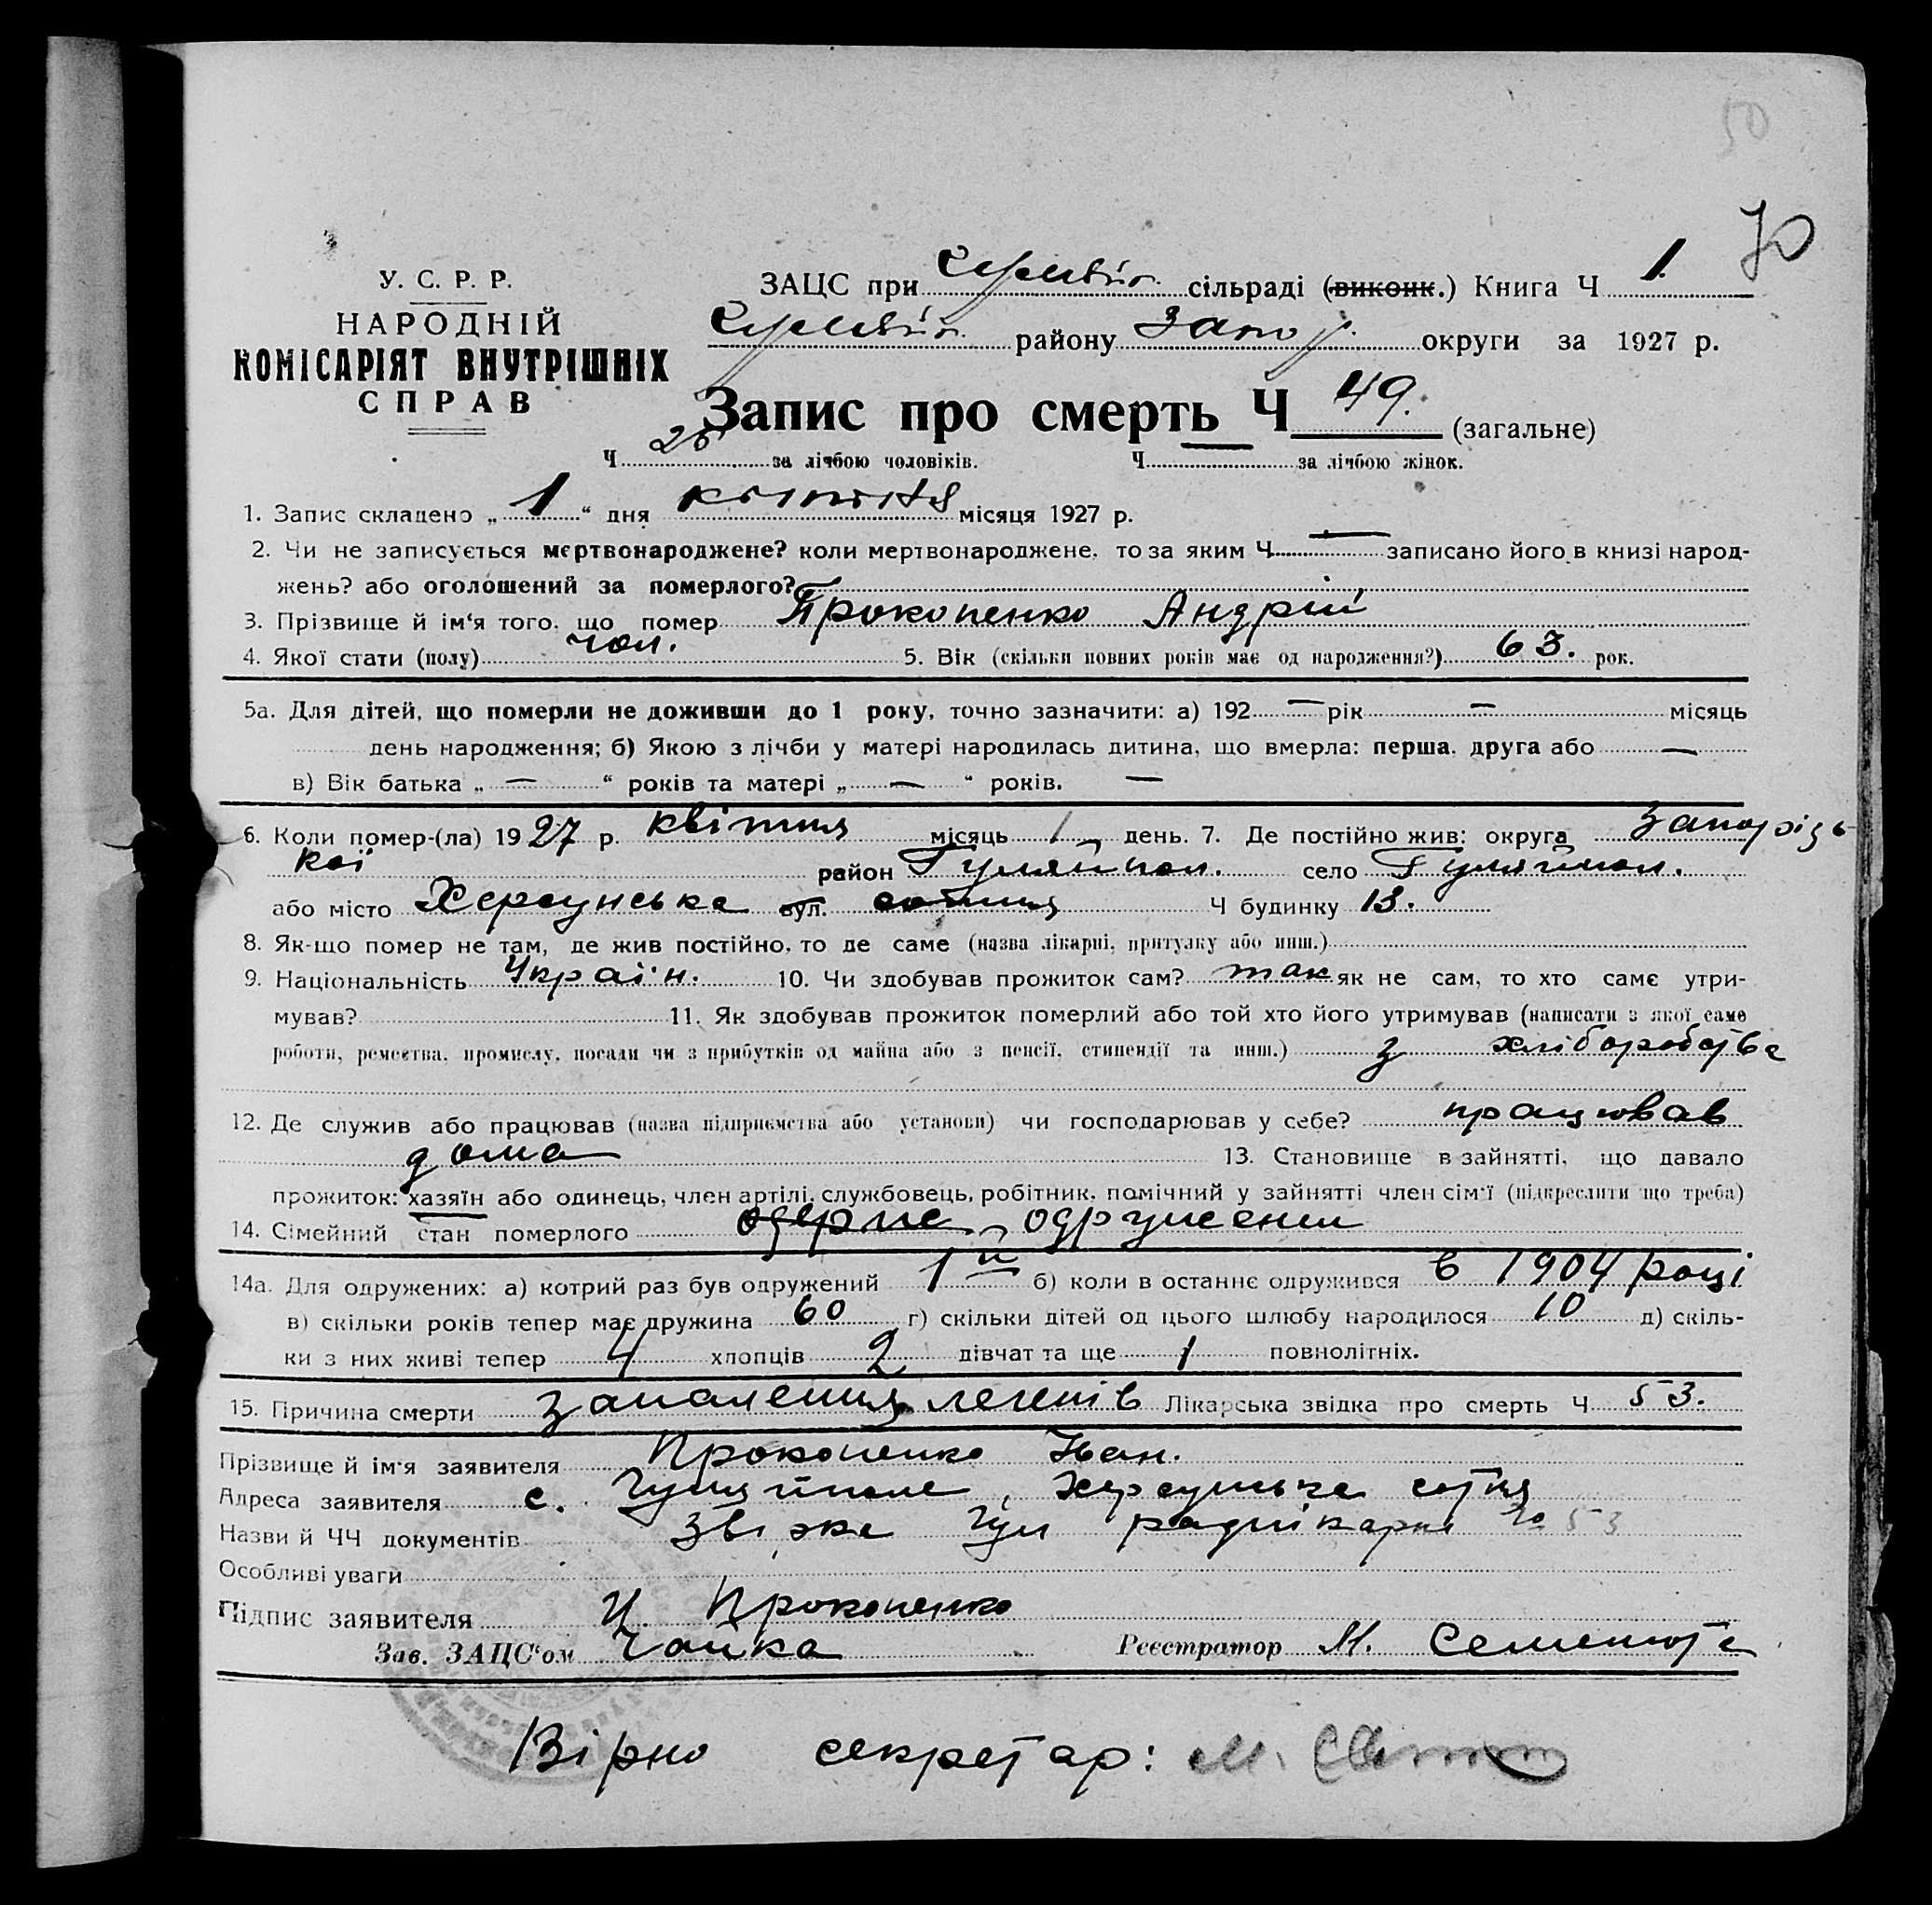 50
70
У. С. Р. Р.
НАРОДНІЙ
КОМІСАРІЯТ ВНУТРІШНІХ
СПРАВ
ЗАЦС при сільраді (виконк.) Книга Ч 1.
району Запор. округи за 1927 р.
Запис про смерть Ч 49. (загальне)
Ч за лічбою чоловіків. Ч — за лічбою жінок.
1. Запис складено „ 1 “ дня квітня місяця 1927 р.
2. Чи не записується мертвонароджене? коли мертвонароджене, то за яким Ч — записано його в книзі народ-
жень? або оголошений за померлого?
3. Прізвище й ім‘я того, що помер Прокопенко Андрій
4. Якої стати (полу) чол. 5. Вік (скільки повних років має од народження?) 63. рок.
5а. Для дітей, що померли не доживши до 1 року, точно зазначити: а) 192 — рік — місяць
день народження; б) Якою з лічби у матері народилась дитина, що вмерла: перша, друга або —
в) Вік батька „ — “ років та матері „ — “ років. —
6. Коли помер-(ла) 1927 р. квітня місяць 1 день. 7. Де постійно жив: округа Запорізь
кої район Гуляйпол. село Гуляйпол.
або місто Херсунська вул. сотня Ч будинку 13.
8. Як-що помер не там, де жив постійно, то де саме (назва лікарні, притулку або инш.)
9. Національність Україн. 10. Чи здобував прожиток сам? так як не сам, то хто саме утри-
мував? 11. Як здобував прожиток померлий або той хто його утримував (написати з якої саме
роботи, ремества, промислу, посади чи з прибутків од майна або з пенсії, стипендії та инш.) з хліборобства
12. Де служив або працював (назва підприємства або установи) чи господарював у себе? працював
дома 13. Становище в зайнятті, що давало
прожиток: хазяїн або одинець, член артілі, службовець, робітник, помічний у зайнятті член сім‘ї (підкреслити що треба)
14. Сімейний стан померлого одружений
14а. Для одружених: а) котрий раз був одружений 1й б) коли в останнє одружився в 1904 році
в) скільки років тепер має дружина 60 г) скільки дітей од цього шлюбу народилося 10 д) скіль-
ки з них живі тепер 4 хлопців 2 дівчат та ще 1 повнолітніх.
15. Причина смерти запалення легенів Лікарська звідка про смерть Ч 53.
Прізвище й ім‘я заявителя Прокопенко Іван.
Адреса заявителя с. Гуляйполе, Херсунська сотня
Назви й ЧЧ документів Гул 53
Особливі уваги
Підпис заявителя И. Прокопенко
Зав. ЗАЦС‘ом Чайка Реєстратор М.
Вірно секретар: М.